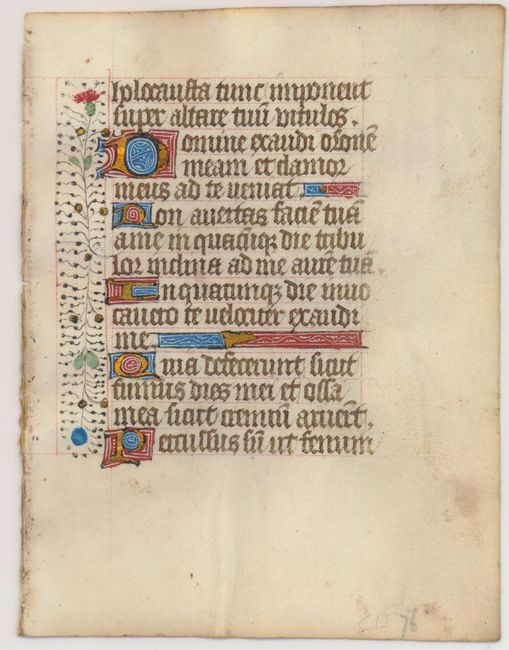 holocausta tunc imponent
super altare tuū vitulos.
Domine exaudi oronē
meam et clamor
meus ad te veniat
Non avertas faciē tuā
a me in quacūqz die tribu
lor inclina ad me aurē tuā.
In quacunqz die invo
cavero te velociter exaudi
me
Quia defecerunt sicut
fumus dies mei et ossa
mea sicut cremiū aruerūt.
Percussus sū ut fenum
76